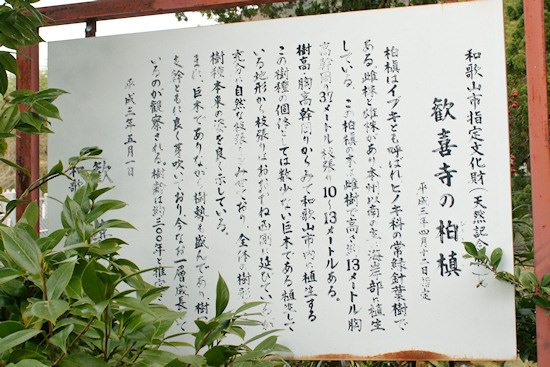 和歌山市指定文化財(天然記念
歓喜寺の柏槙
平成三年四月十二日指定
柏槙はイブキとも呼ばれヒノキ科の常緑針葉樹で
ある。雌株と雄株があり本州以南の主に海岸部に植生
している。この柏槙の木は雌樹で高さ13メートル胸
高幹周り3.7メートル枝張り10〜13メートルある。
樹高・胸高幹周りからみて和歌山市内に植生する
この樹種の個体としては数少ない巨木である。植生して
いる地形から枝張りはおおむね西側に延びている
充分に自然な枝張りをみせており、全体の樹形
樹種本来の姿を良く示している。
また、巨木でありながら樹勢も盛んであり、樹
支幹ともに良く芽吹いており今なお一層成長して
いるのが観察される。樹齢は約三〇〇年と推定
平成三年五月一日
歓
和歌